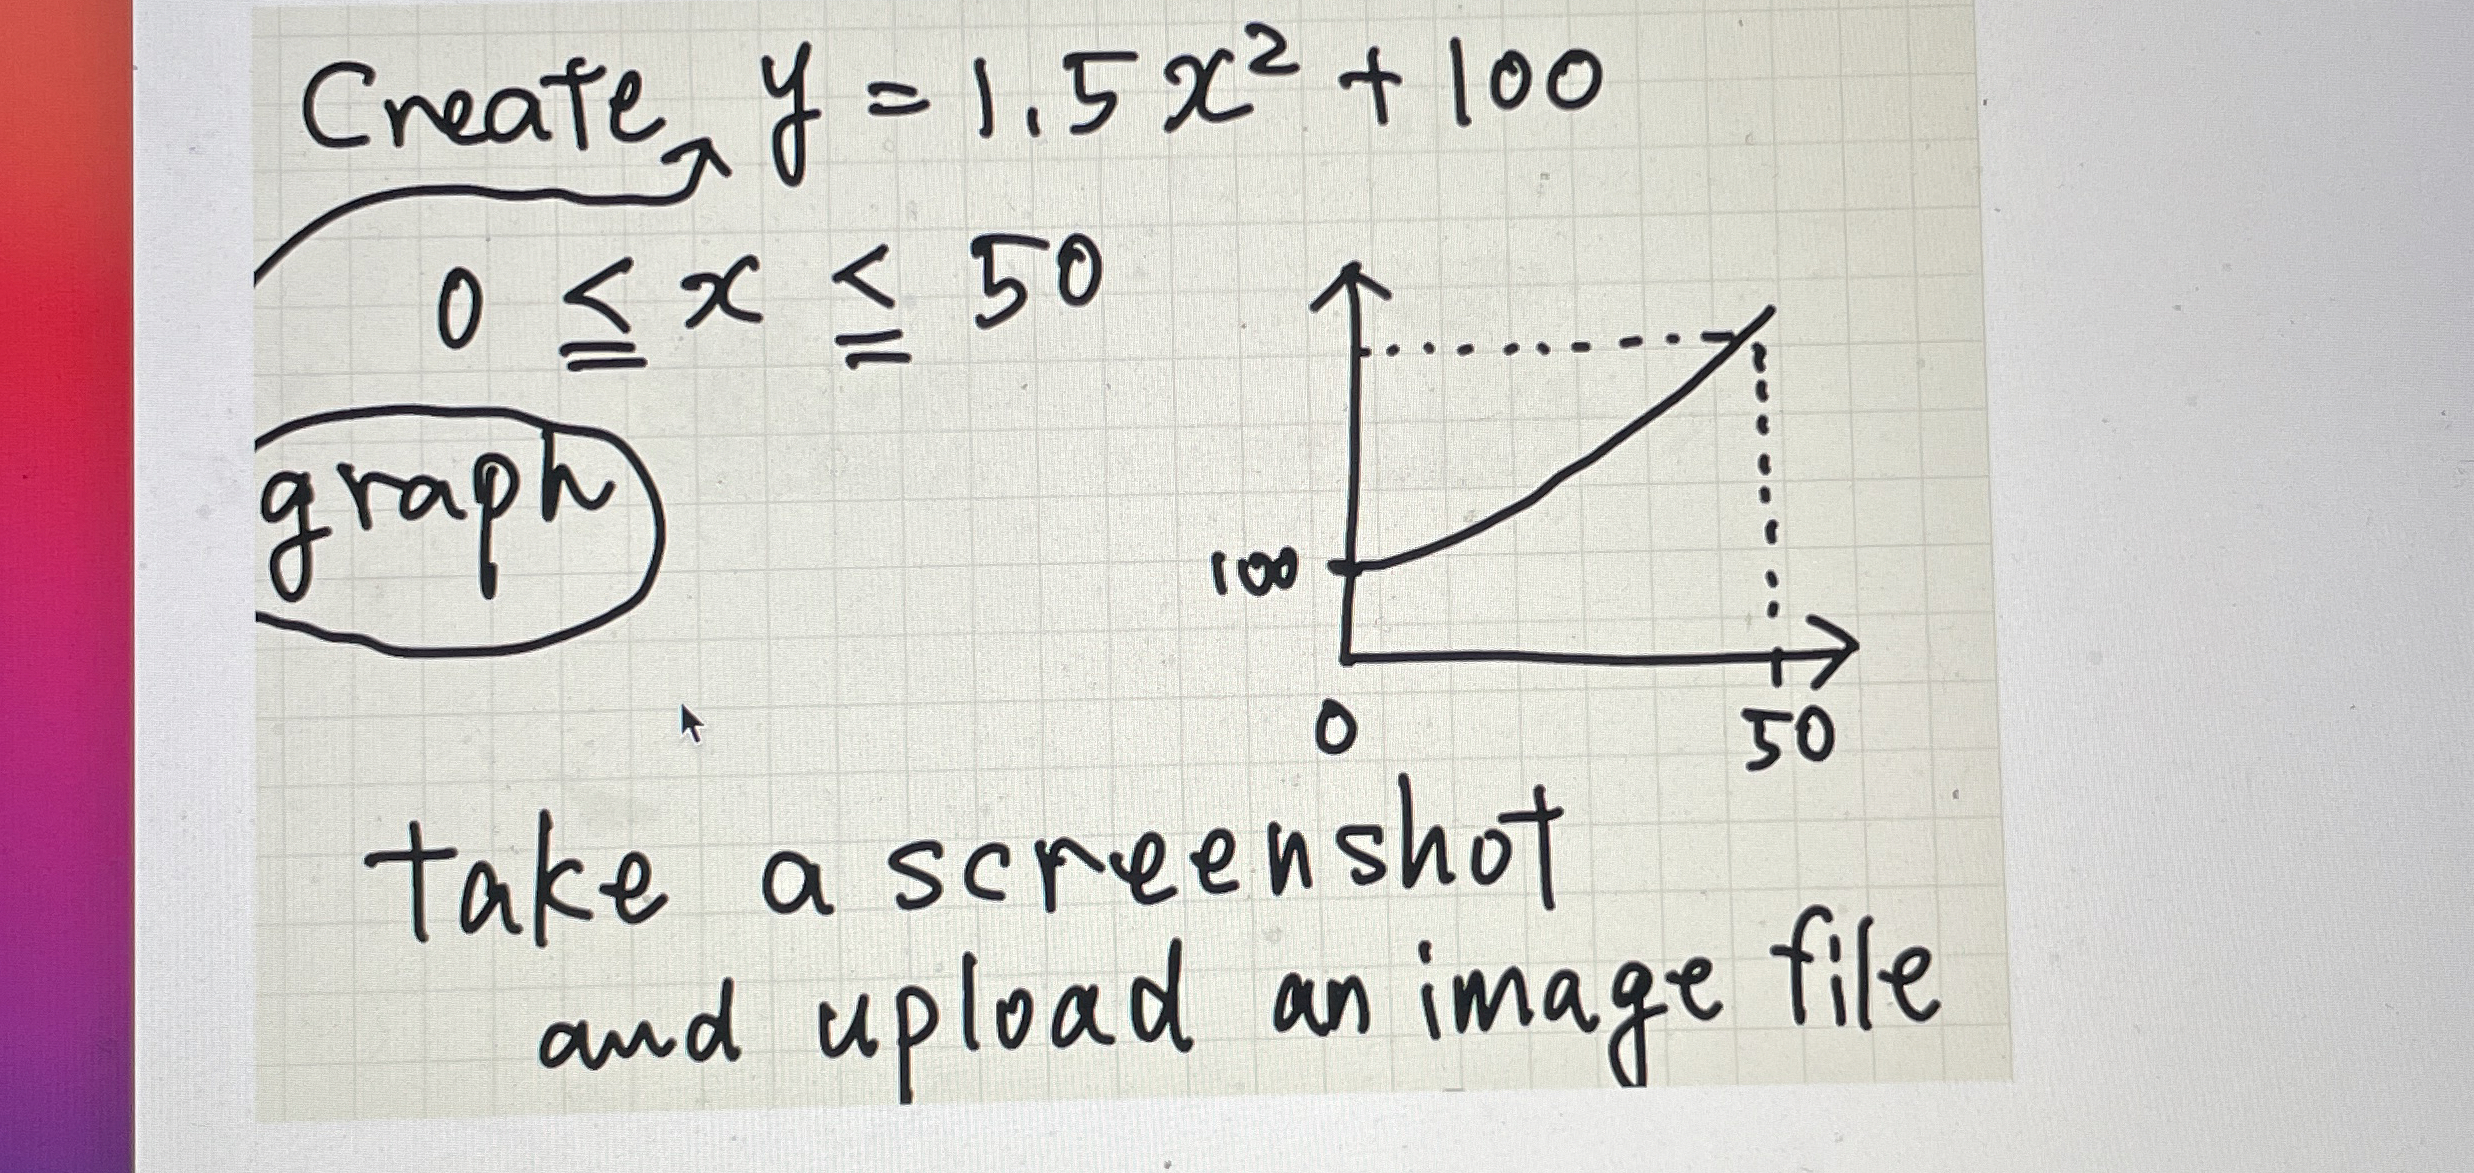 Create y = 1.5x² + 100
0 ≦ x ≦ 50
graph
100
0
50
take a screenshot
and upload an image file